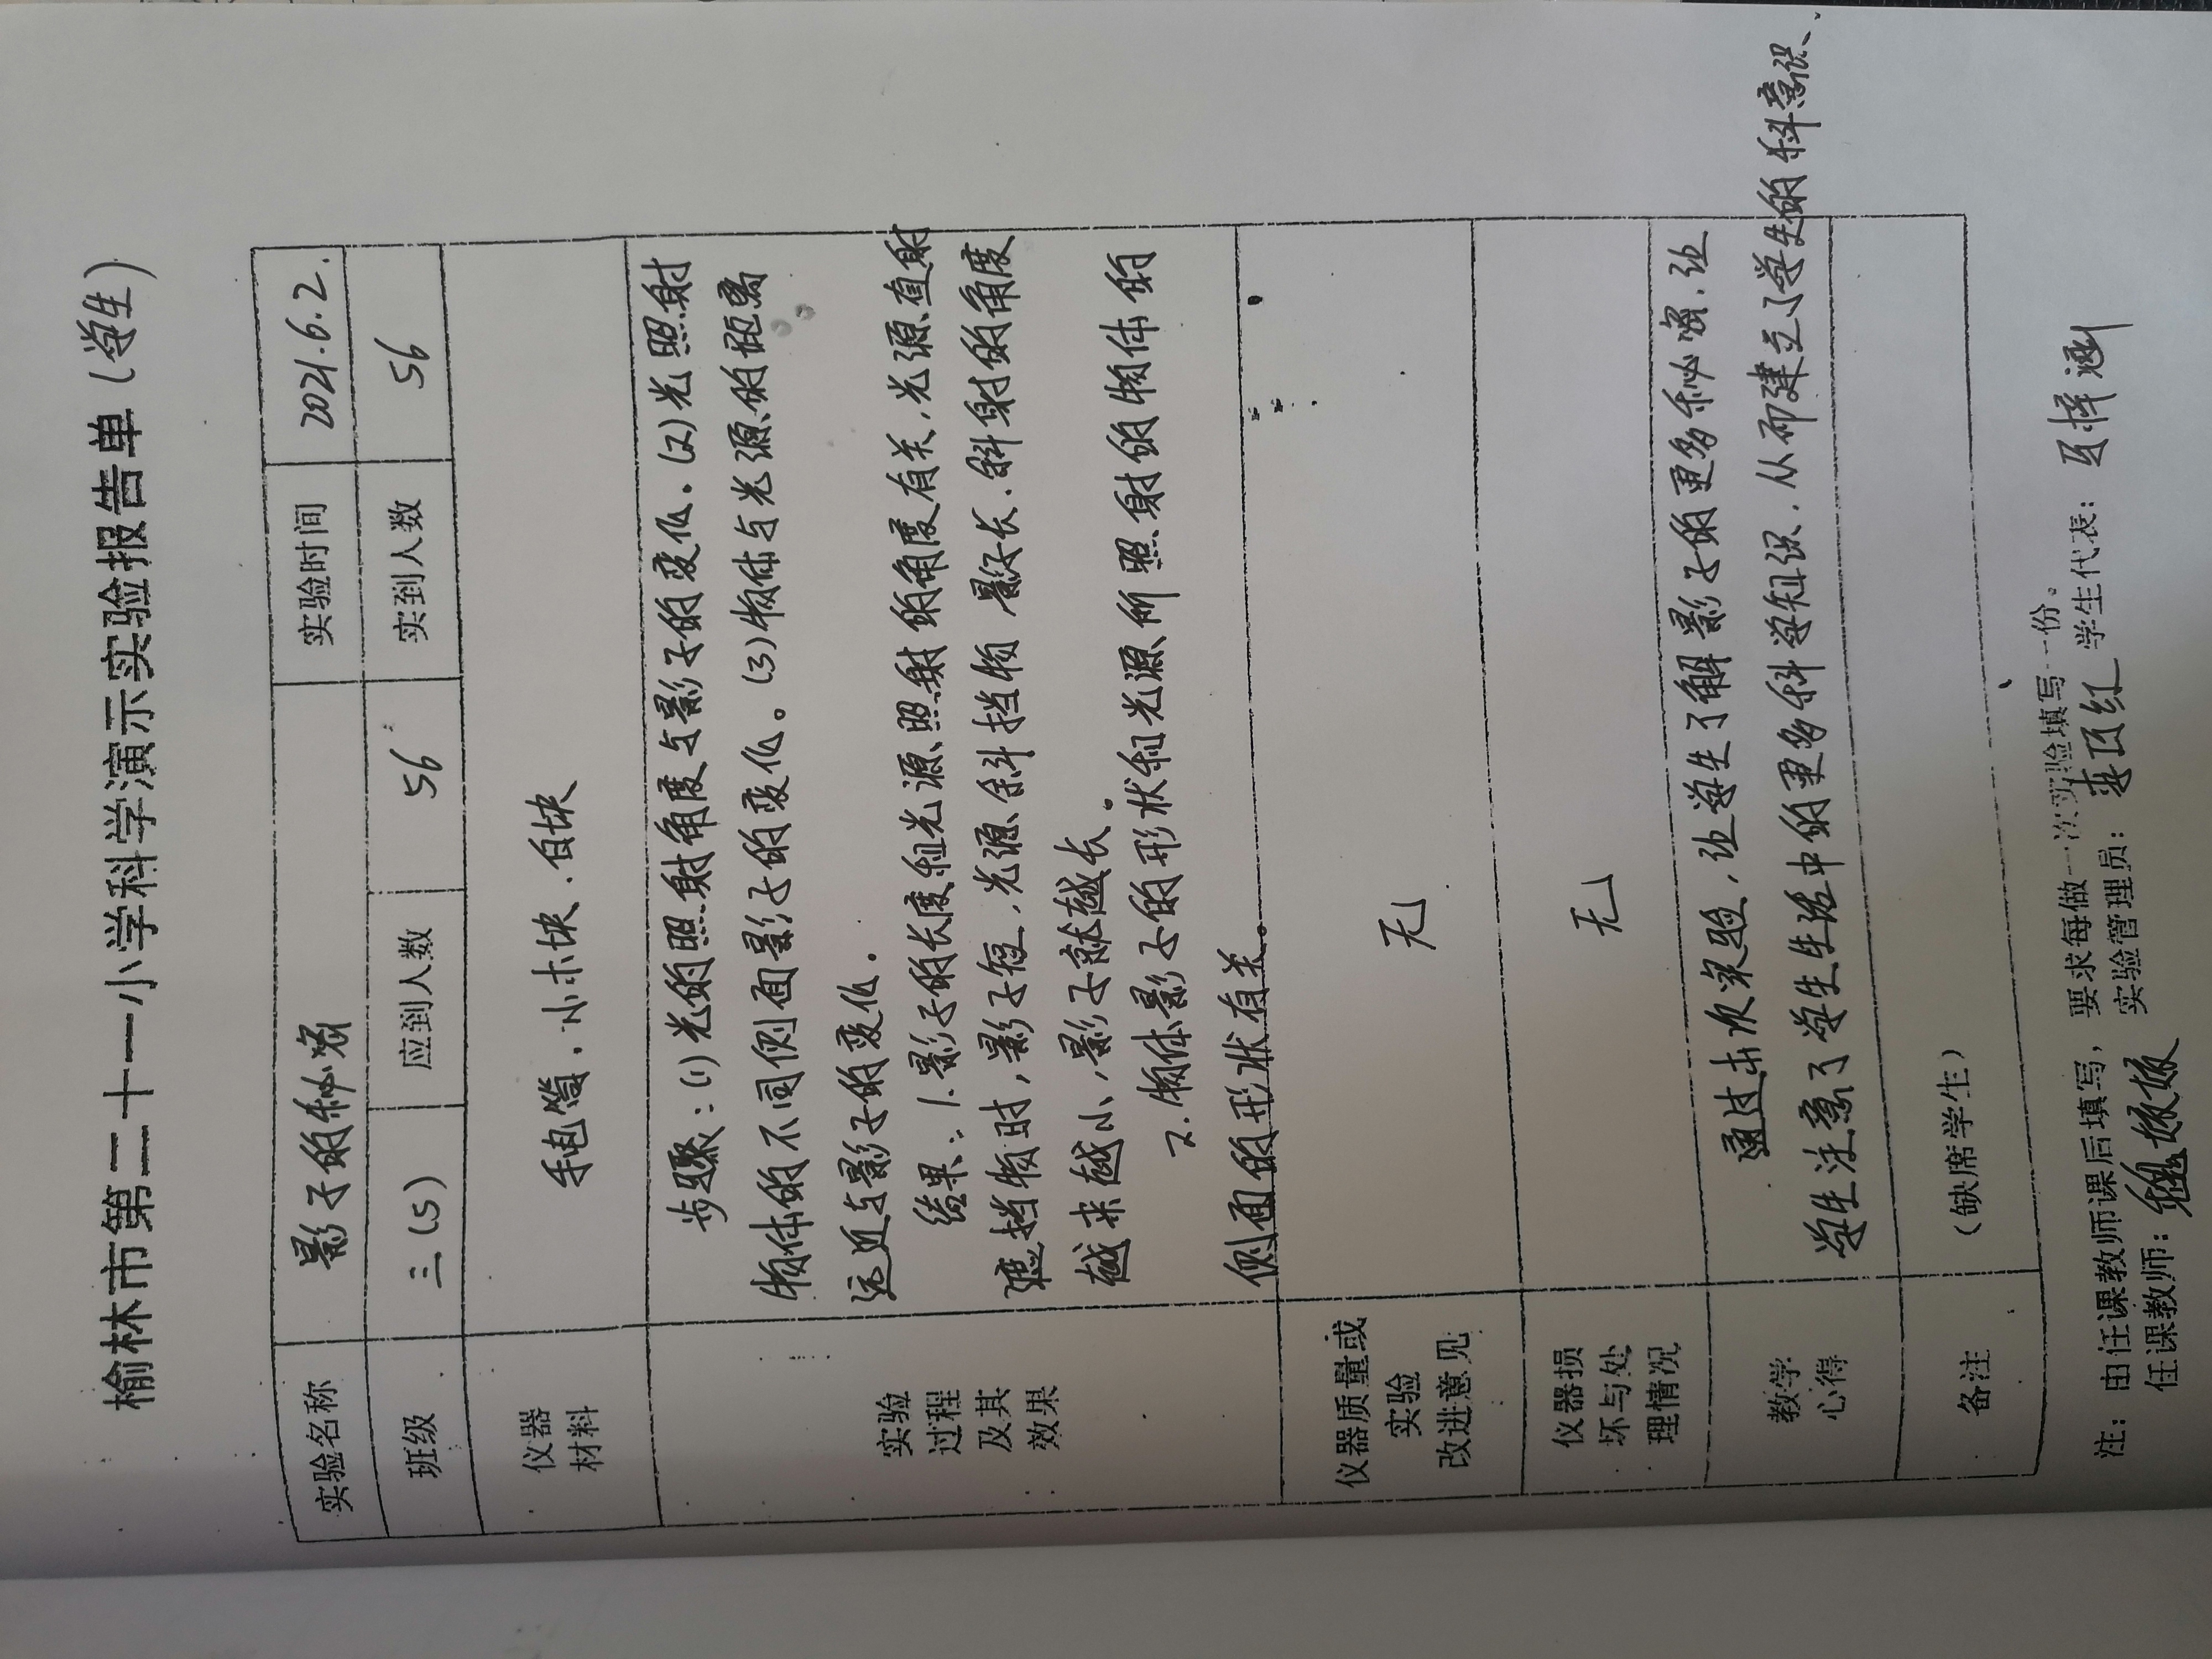 榆林市第二十一小学科学演示实验报告单(学生)
实验名称 影子的秘密 实验时间 2021.6.2.
班级 三(5) 应到人数 56 实到人数 56
仪器
材料
手电筒、小木块、白块
实验
过程
及其
效果
步骤:(1)光的照射角度与影子的变化.(2)光照射
物体的不同侧面影子的变化。(3)物体与光源的距离
远近与影子的变化.
结果:1.影子的长度和光源照射的角度有关,光源直射
遮挡物时,影子短,光源斜挡物影子长.斜射的角度
越来越小,影子就越长。
2.物体影子的形状和光源所照射的物体的
侧面的形状有关。
仪器质量或
实验
改进意见
无
仪器损
坏与处
理情况
无
教学
心得
通过本次实验,让学生了解影子的更多秘密.让
学生注意了学生生活中的更多科学知识.从而建立了学生的科意识、
备注 (缺席学生)
注:由任课教师课后填写,要求每做一次实验填写一份。
任课教师: 实验管理员: 学生代表: